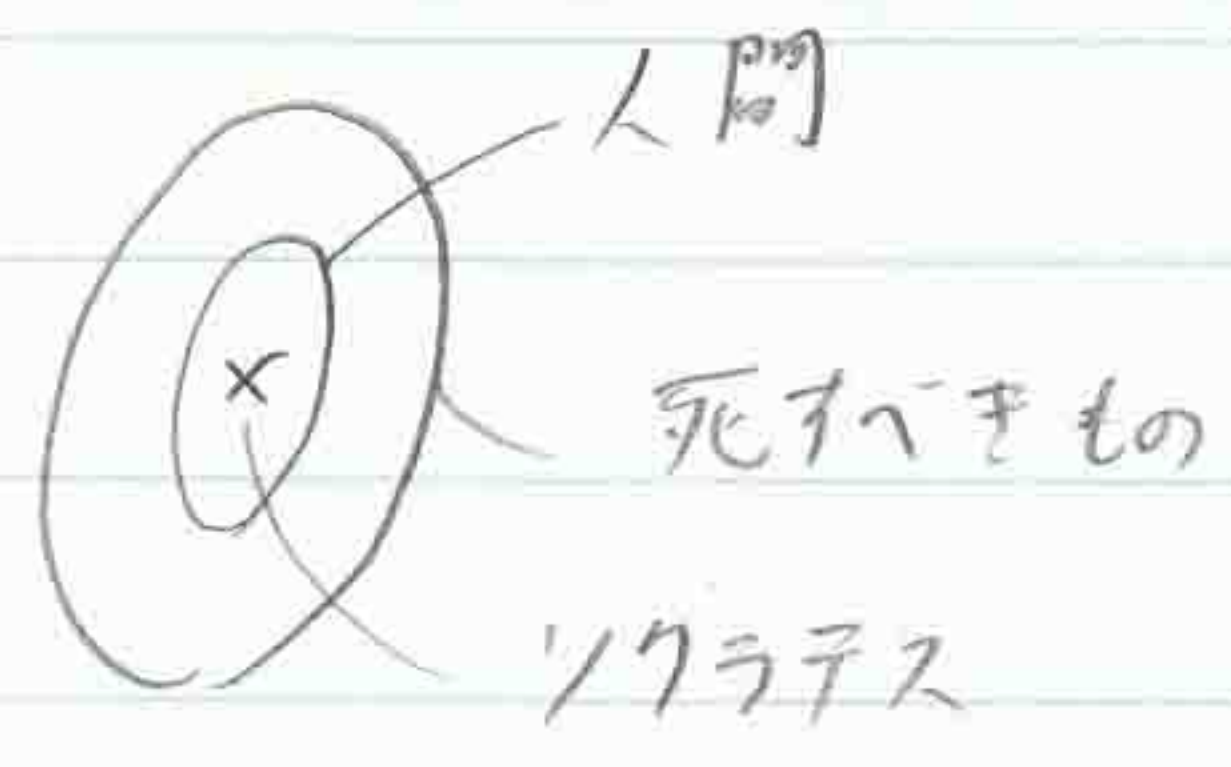 人間
死すべきもの
ソクラテス